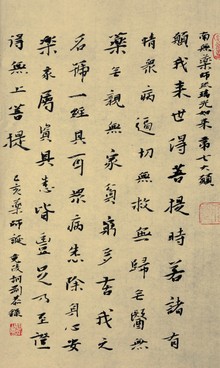 南無藥師琉璃光如来 第七大願
願我来世得菩提時若諸有
情衆病逼切無救無歸无醫無
藥无親無家貧窮多苦我之
名號一經其耳衆病悉除身心安
樂家屬資具悉皆豐足乃至證
得無上菩提
乙亥藥師誕